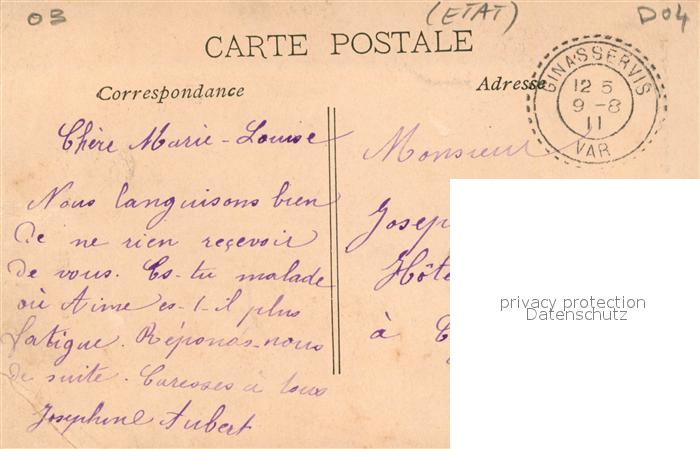 03
(ETAT)
D04
CARTE POSTALE
Correspondance
Adresse
GINASSERVIS
12 5
9 -8
11
VAR
Chère Marie-Louise
Nous languisons bien
de ne rien reçevoir
de vous. Es-tu malade
où Aime es-t-il plus
fatigue. Réponds-nous
de suite. Caresses à tous
Josephine Aubert
Monsieur
Josep
Hôte
à
privacy protection
Datenschutz